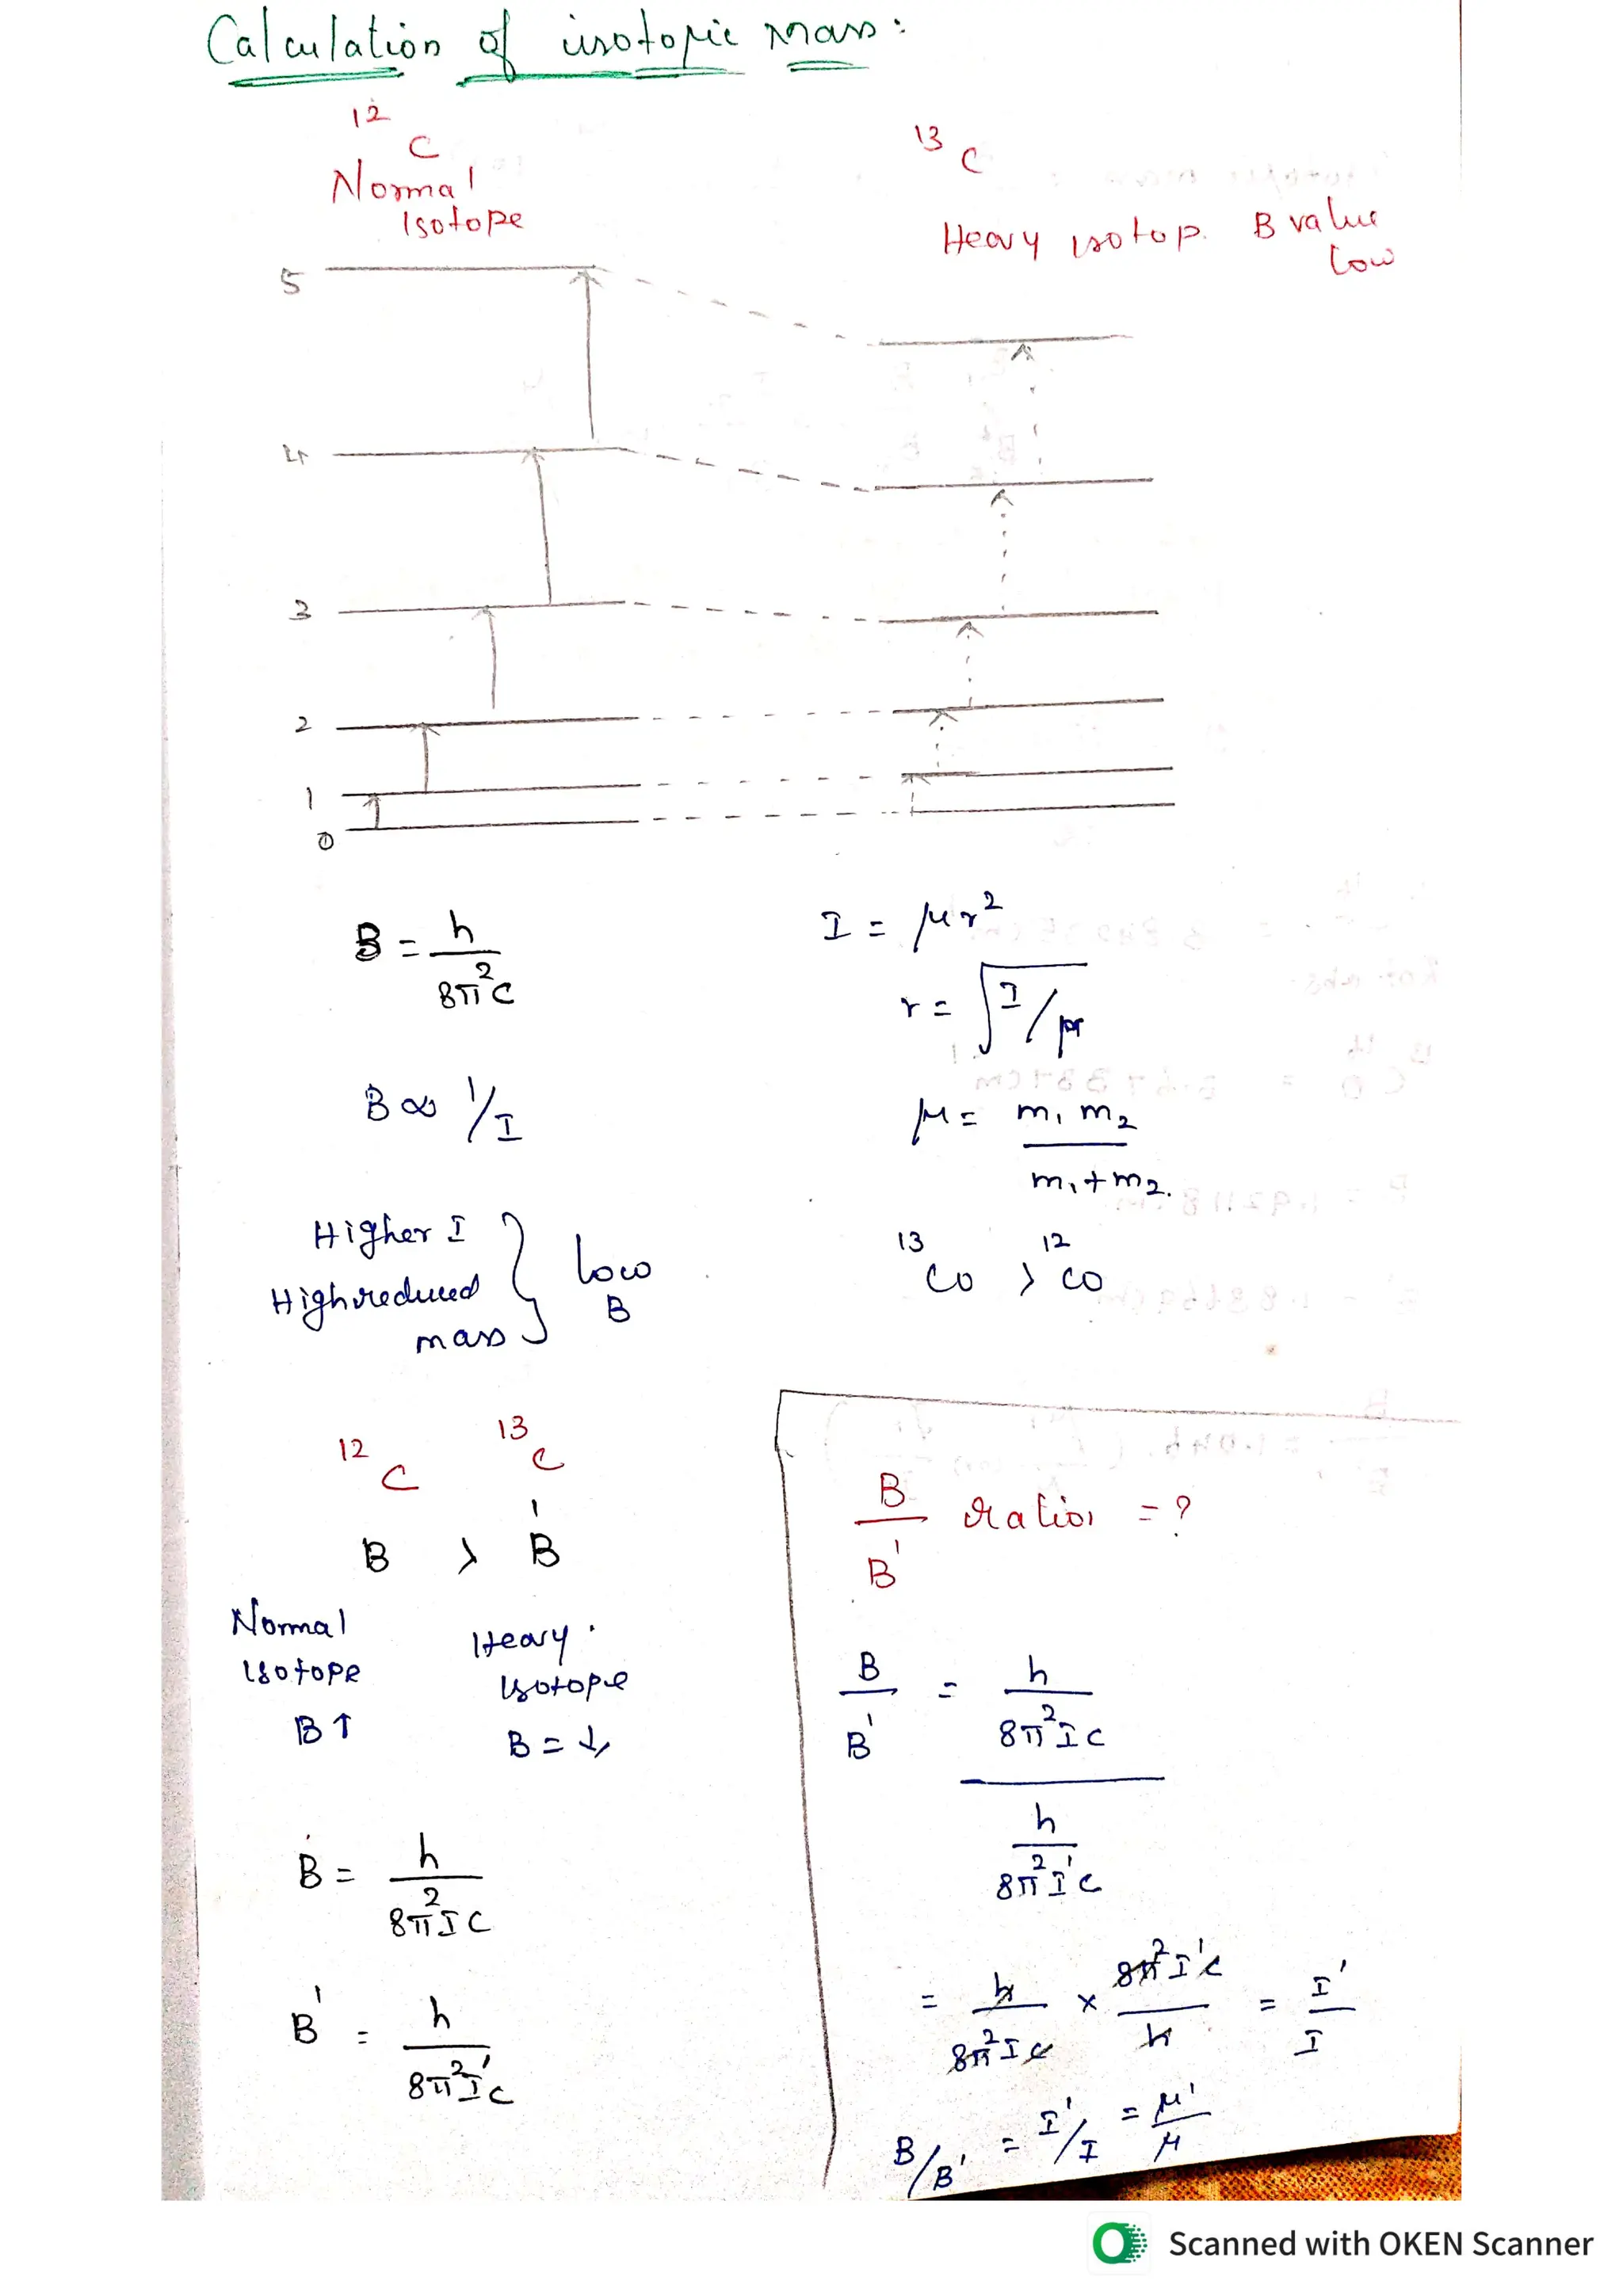 Calculation of isotopic mass:
12
C
Normal
Isotope
13
C
Heavy isotop. B value
low
5
4
3
2
1
0
B = h / 8π²C
B ∝ 1/I
Higher I
High reduced
mass
} low
B
I = μr²
r = √I/μ
μ = m₁ m₂ / m₁+m₂.
¹³CO > ¹²CO
¹²C ¹³C
B > B'
Normal
Isotope
B↑
Heavy
Isotope
B = ↓
B = h / 8π²IC
B' = h / 8π²I'C
B / B' ratio = ?
B / B' = h / 8π²IC
h / 8π²I'C
= h / 8π²IC × 8π²I'C / h = I' / I
B/B' = I'/I = μ' / μ
Scanned with OKEN Scanner